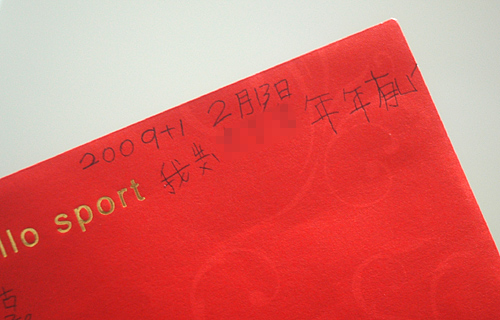 2009+1 2月13日 年年有心
我
llo sport